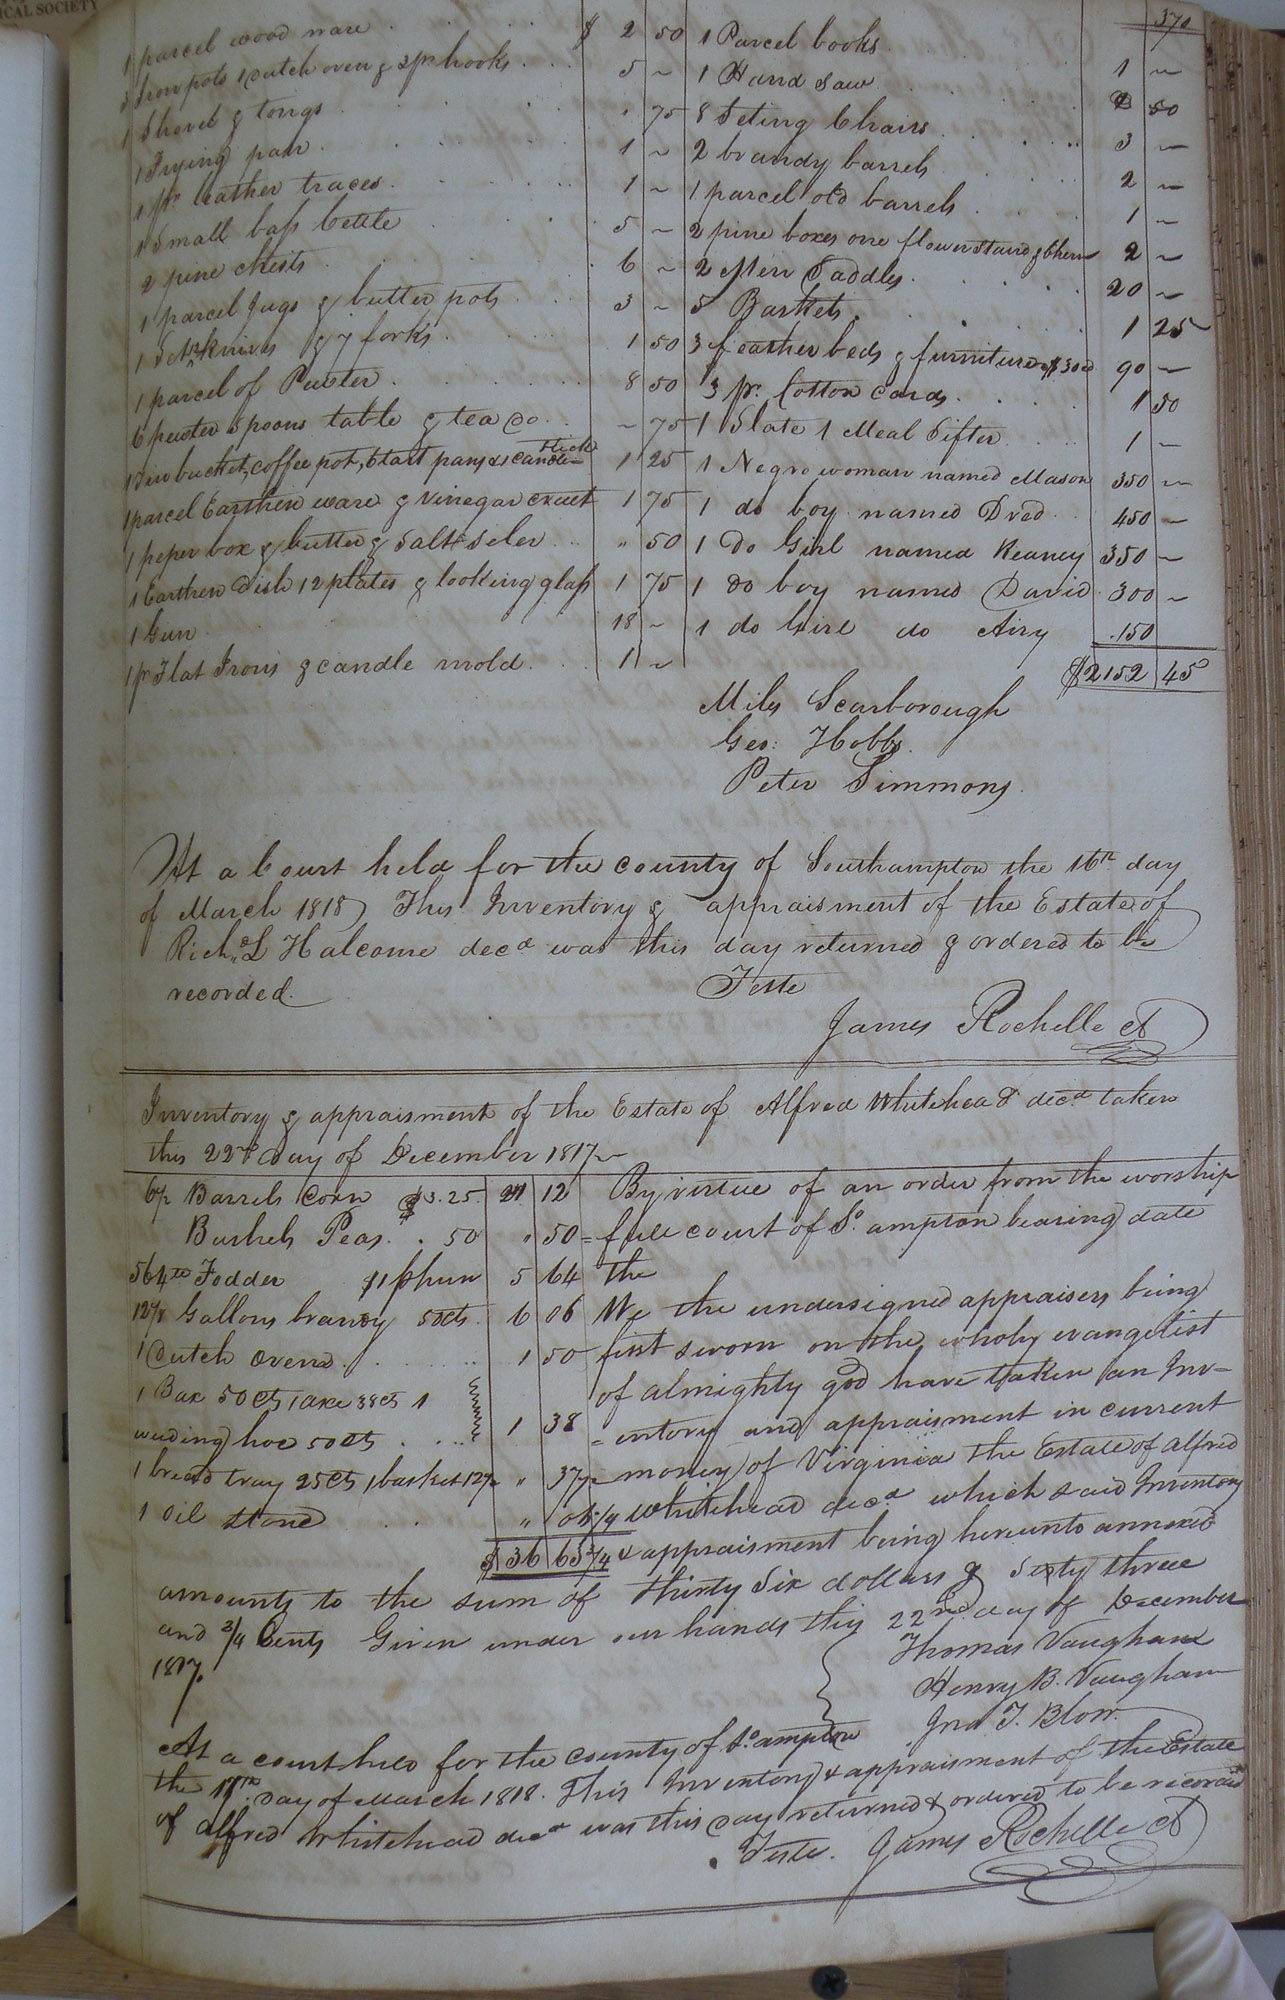 ICAL SOCIETY
370
1 parcel wood ware $ 2 50
3 Iron pots 1 dutch oven & 2 pr hooks 5 ~
1 Shovel & tongs . 75
1 Frying pan 1 ~
1 pr. leather traces 1 ~
1 Small bass kettle 5 ~
2 pine chests 6 ~
1 parcel Jugs & butter pots 3 ~
1 Set knives & 7 forks 1 50
1 parcel of Pewter 8 50
6 pewter Spoons table & tea do ~ 75
1 Tin bucket, coffee pot, 6 tart pans & 1 candle-stick 1 25
1 parcel Earthen ware & vinegar cruet 1 75
1 peper box & butter & Salt seler " 50
1 Earthen Dish 12 plates & looking glass 1 75
1 Gun 18 ~
1 pr Flat Irons & candle mold 1 ~
1 Parcel books 1 ~
1 Hand Saw 50
8 Seting Chairs 3 ~
2 brandy barrels 2 ~
1 parcel old barrels 1 ~
2 pine boxes one flower stand & Chern 2 ~
2 Men Saddles 20 ~
5 Baskets 1 25
3 feather beds & furniture @ $30 ea 90 ~
3 pr. Cotton Cards 1 50
1 Slate 1 Meal Sifter 1 ~
1 Negro woman named Mason 350 ~
1 do boy named Dred 450 ~
1 Do Girl named Reaney 350 ~
1 do boy named David 300 ~
1 do Girl do Airy 150
$2152 45
Miles Scarborough
Geo: Hobbs
Peter Simmons
At a Court held for the county of Southampton the 16th day
of March 1818 This Inventory & appraisment of the Estate of
Richd. L Halcome decd was this day returned & ordered to be
recorded. Teste
James Rochelle Ct
Inventory & appraisment of the Estate of Alfred Whitehead decd taken
this 22nd day of December 1817 ~
6½ Barrels Corn $3.25 21 12
Bushels Peas . 50 " 50
564 lb Fodder $1 phun 5 64
12⅛ Gallons brandy 50cts 6 06
1 Dutch oven 1 50
1 Bax 50cts 1 axe 38cts 1
weeding hoe 50cts 1 38
1 bread tray 25cts 1 basket 12½ " 37½
1 Oil stone " 06¼
$ 36 63¾
By virtue of an order from the worship
= full court of So. ampton bearing date
the
We the undersigned appraisers being
first sworn on the wholy evangelist
of almighty god have taken an Inv=
= entory and appraisment in current
money of Virginia the Estate of Alfred
Whitehead decd which said Inventory
& appraisment being hereunto annexed
amounts to the sum of thirty Six dollars & Sixty three
and ¾ Cents Given under our hands this 22nd day of December
1817.
Thomas Vaughan
Henry B. Vaughan
Jno T. Blow
At a court held for the county of So. ampton
the 17th. Day of March 1818. This Inventory & appraisment of the Estate
of Alfred Whitehead decd was this Day returned & ordered to be recorded
Teste. James Rochelle Ct